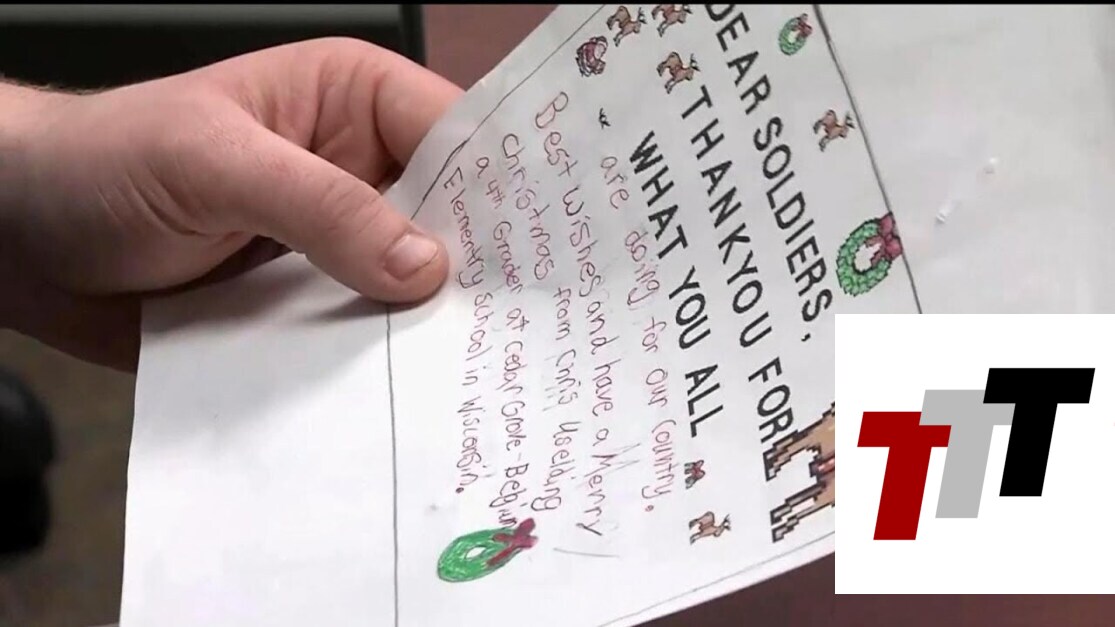 DEAR SOLDIERS,
THANKYOU FOR
WHAT YOU ALL
are doing for our country.
Best Wishes and have a Merry
Christmas from Chris Uselding
a 4th Grader at Cedar Grove-Belgium
Elementry School in Wisconsin.
TTT